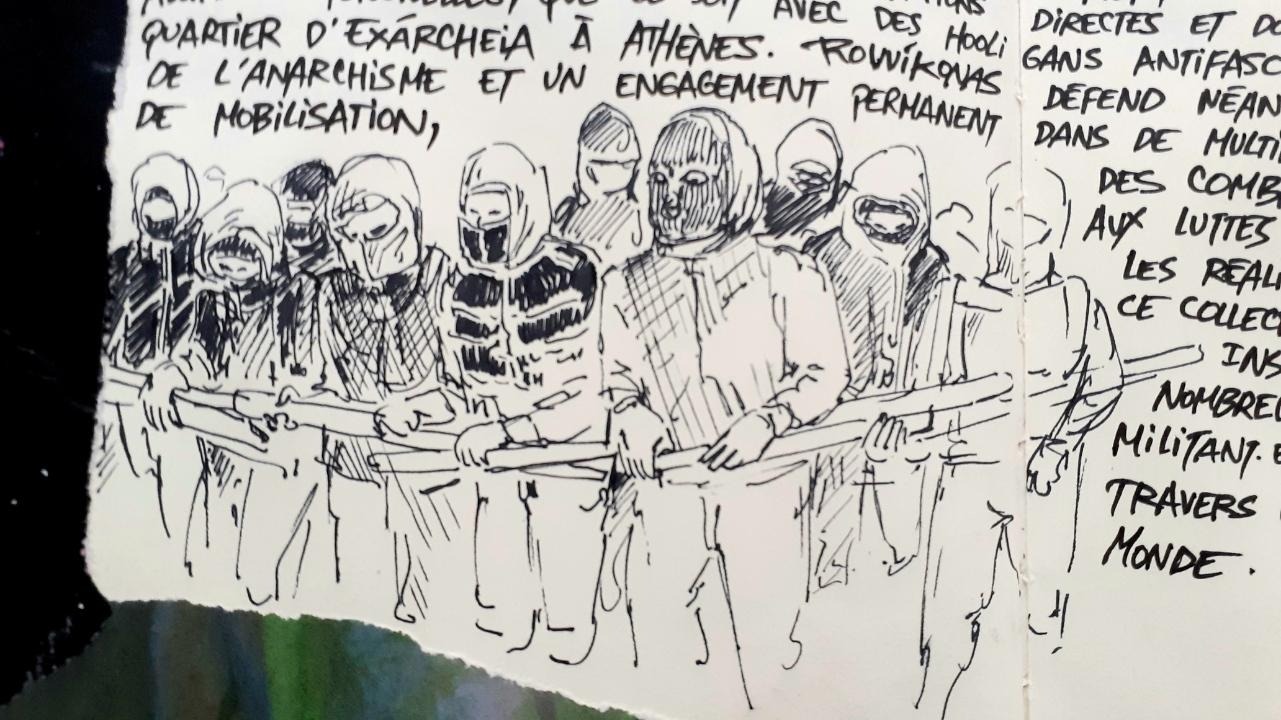 AVEC DES HOOLI
QUARTIER D'EXÁRCHEIA À ATHÈNES. ROUVIKONAS
DE L'ANARCHISME ET UN ENGAGEMENT PERMANENT
DE MOBILISATION,
DIRECTES ET
GANS ANTIFASC
DÉFEND NÉAN
DANS DE MULTI
DES COMB
AUX LUTTES
LES REAL
CE COLLEC
INS
NOMBRE
MILITANT.
TRAVERS
MONDE.